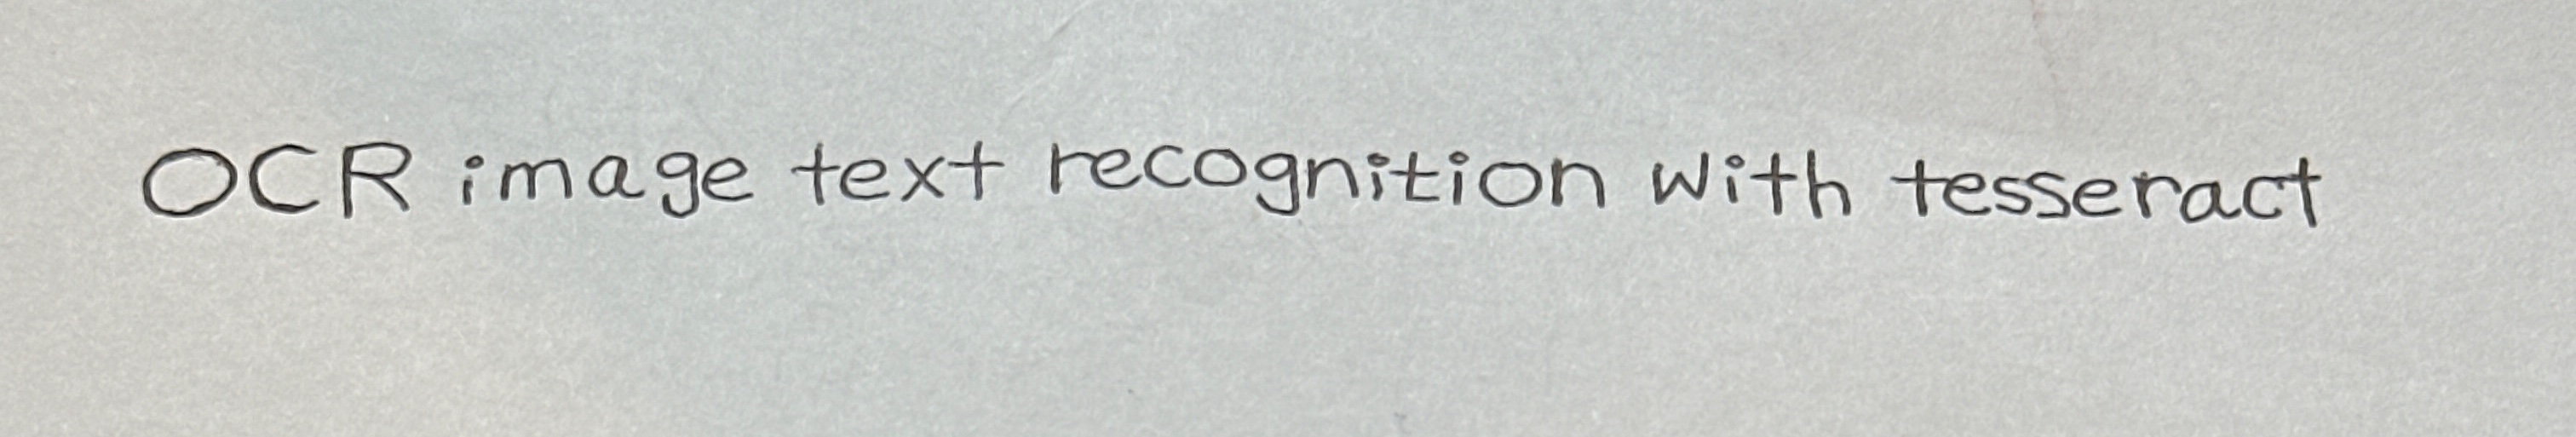 OCR image text recognition with tesseract